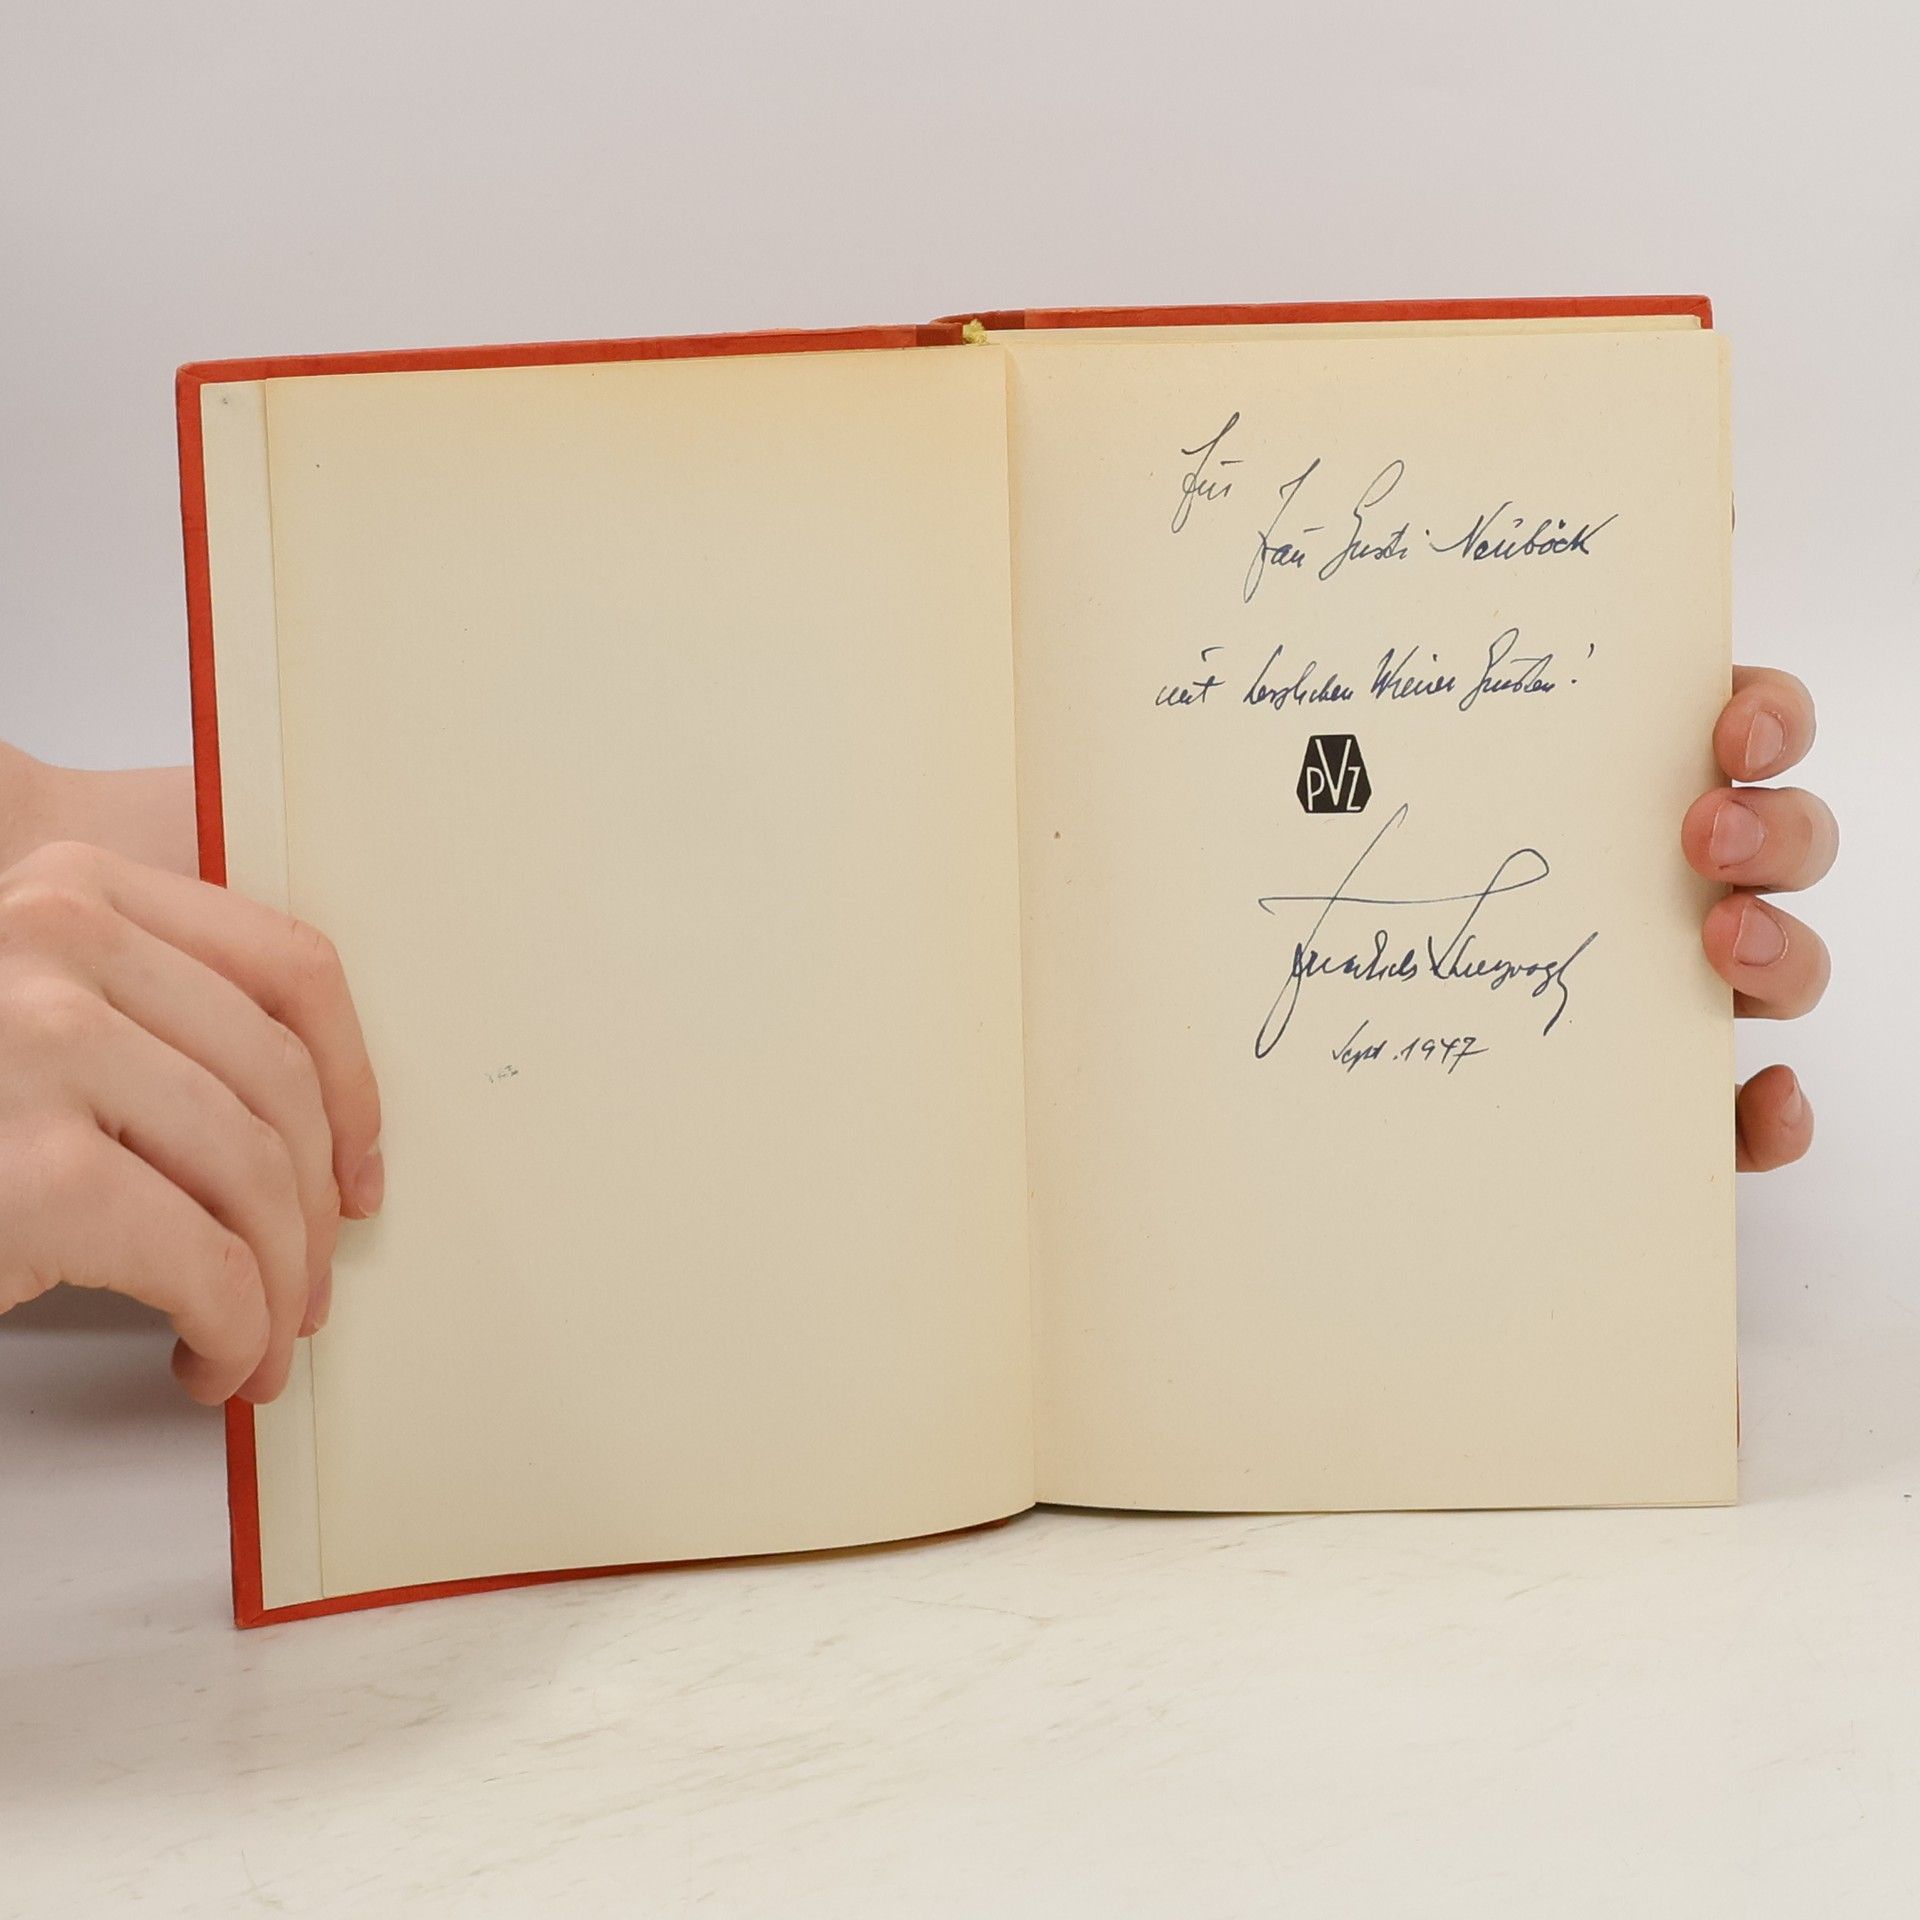 Für
Frau Gusti Neuböck
mit herzlichen Wiener Grüßen!
PVZ
Sept. 1947